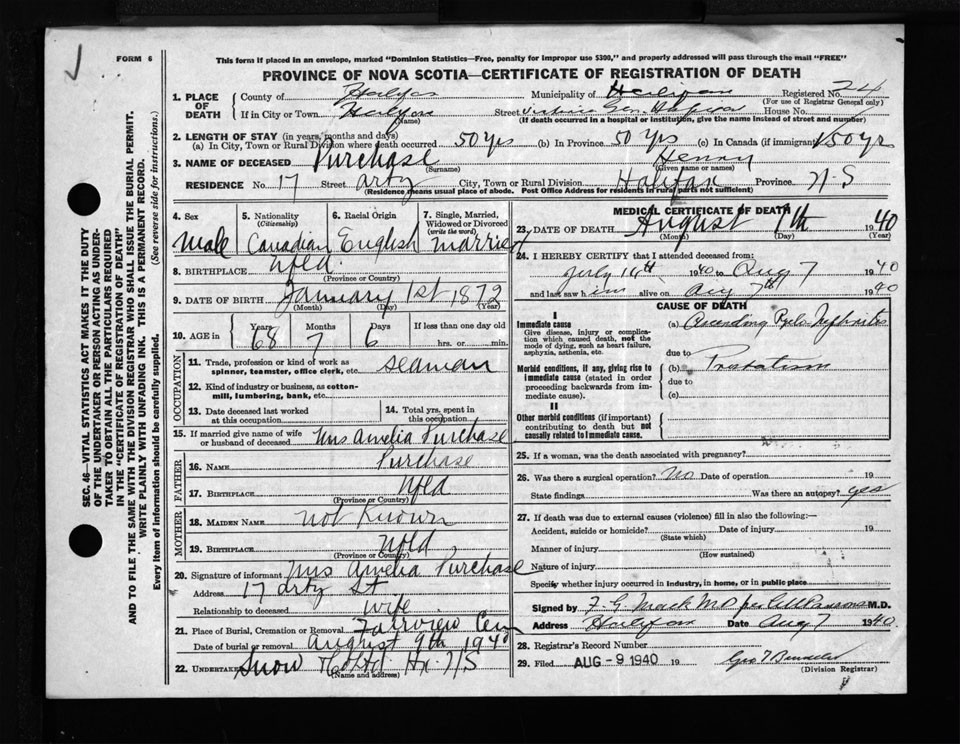 FORM 6
This form if placed in an envelope, marked "Dominion Statistics—Free, penalty for improper use $300," and properly addressed will pass through the mail "FREE"
PROVINCE OF NOVA SCOTIA—CERTIFICATE OF REGISTRATION OF DEATH
SEC. 46—VITAL STATISTICS ACT MAKES IT THE DUTY
OF THE UNDERTAKER OR PERSON ACTING AS UNDER-
TAKER TO OBTAIN ALL THE PARTICULARS REQUIRED
IN THE "CERTIFICATE OF REGISTRATION OF DEATH"
AND TO FILE THE SAME WITH THE DIVISION REGISTRAR WHO SHALL ISSUE THE BURIAL PERMIT.
WRITE PLAINLY WITH UNFADING INK. THIS IS A PERMANENT RECORD.
Every item of information should be carefully supplied. (See reverse side for instructions.)
1. PLACE OF DEATH County of Halifax Municipality of Halifax Registered No. 74
(For use of Registrar General only)
If in City or Town Halifax Street Victoria Gen. Hospital House No.
(Name) (If death occurred in a hospital or institution, give the name instead of street and number)
2. LENGTH OF STAY (in years, months and days)
(a) In City, Town or Rural Division where death occurred 50 yrs (b) In Province 50 yrs (c) In Canada (if immigrant) 50 yr
3. NAME OF DECEASED Purchase Henry
(Surname) (Given name or names)
RESIDENCE No. 17 Street Arty City, Town or Rural Division Halifax Province N-S
(Residence means usual place of abode. Post Office Address for residents in rural parts not sufficient)
4. Sex 5. Nationality (Citizenship) 6. Racial Origin 7. Single, Married, Widowed or Divorced (write the word)
Male Canadian English married
8. BIRTHPLACE Nfld.
(Province or Country)
9. DATE OF BIRTH January 1st 1872
(Month) (Day) (Year)
10. AGE in Years Months Days If less than one day old
68 7 6 hrs. or min.
OCCUPATION
11. Trade, profession or kind of work as spinner, teamster, office clerk, etc. seaman
12. Kind of industry or business, as cotton-mill, lumbering, bank, etc.
13. Date deceased last worked at this occupation
14. Total yrs. spent in this occupation
15. If married give name of wife or husband of deceased Mrs Amelia Purchase
FATHER
16. NAME Purchase
17. BIRTHPLACE Nfld
(Province or Country)
MOTHER
18. MAIDEN NAME not Known
19. BIRTHPLACE Nfld
(Province or Country)
20. Signature of informant Mrs Amelia Purchase
Address 17 Arty St
Relationship to deceased wife
21. Place of Burial, Cremation or Removal Fairview Cem
Date of burial or removal August 9th 1940
22. UNDERTAKER Snow & Co Ltd Hx. N S
(Name and address)
MEDICAL CERTIFICATE OF DEATH
23. DATE OF DEATH August 7th 1940
(Month) (Day) (Year)
24. I HEREBY CERTIFY that I attended deceased from:
July 14th 1940 to Aug 7 1940
and last saw him alive on Aug 7th 1940
CAUSE OF DEATH
I
Immediate cause
Give disease, injury or complication which caused death, not the mode of dying, such as heart failure, asphyxia, asthenia, etc.
(a) Ascending Pyelo-Nephritis
due to
Morbid conditions, if any, giving rise to immediate cause (stated in order proceeding backwards from immediate cause).
(b) Prostatism
due to
(c)
II
Other morbid conditions (if important) contributing to death but not causally related to immediate cause.
25. If a woman, was the death associated with pregnancy?
26. Was there a surgical operation? No Date of operation 19
State findings Was there an autopsy? yes
27. If death was due to external causes (violence) fill in also the following:—
Accident, suicide or homicide? Date of injury 19
(State which)
Manner of injury
(How sustained)
Nature of injury
Specify whether injury occurred in industry, in home, or in public place
Signed by F. G. Mack M.D. per M.D.
Address Halifax Date Aug 7 1940
28. Registrar's Record Number
29. Filed AUG - 9 1940 19
(Division Registrar)